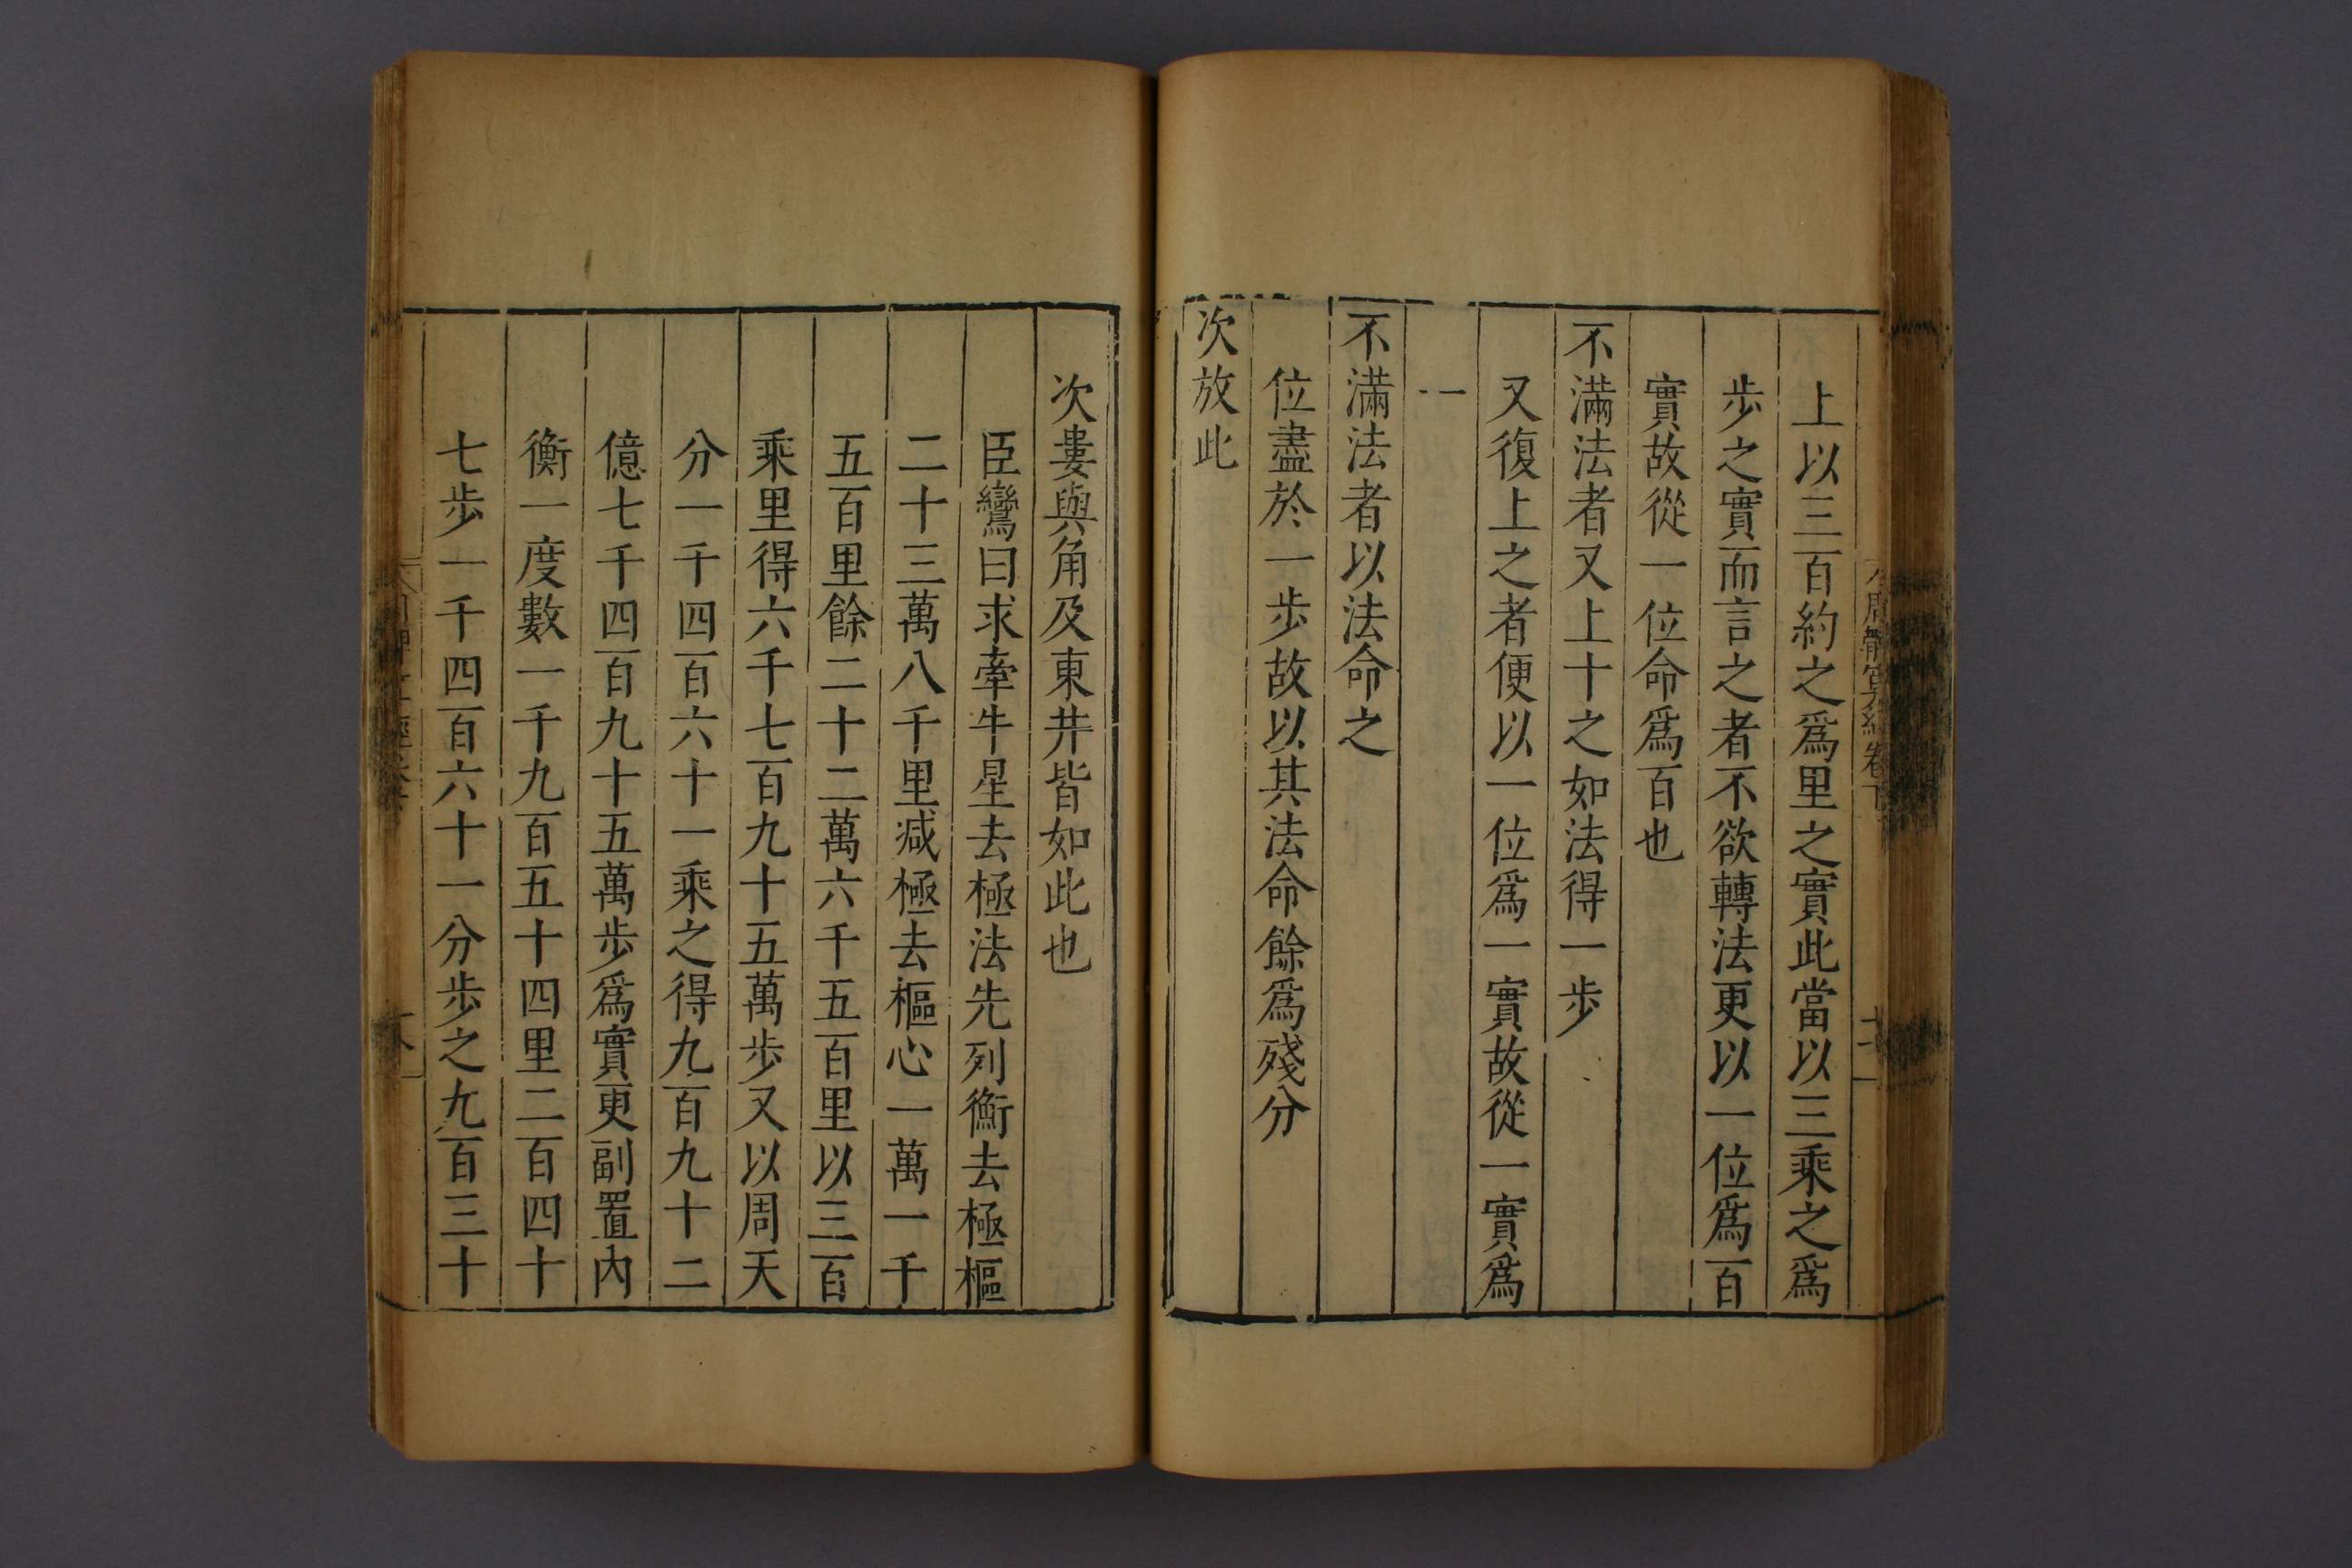 上以三百約之爲里之實此當以三乘之爲
步之實而言之者不欲轉法更以一位爲百
實故從一位命爲百也
不滿法者又上十之如法得一步
又復上之者便以一位爲一實故從一實爲
一
不滿法者以法命之
位盡於一步故以其法命餘爲殘分
次放此
次婁與角及東井皆如此也
臣鸞曰求牽牛星去極法先列衡去極樞
二十三萬八千里减極去樞心一萬一千
五百里餘二十二萬六千五百里以三百
乘里得六千七百九十五萬步又以周天
分一千四百六十一乘之得九百九十二
億七千四百九十五萬步爲實更副置內
衡一度數一千九百五十四里二百四十
七步一千四百六十一分步之九百三十